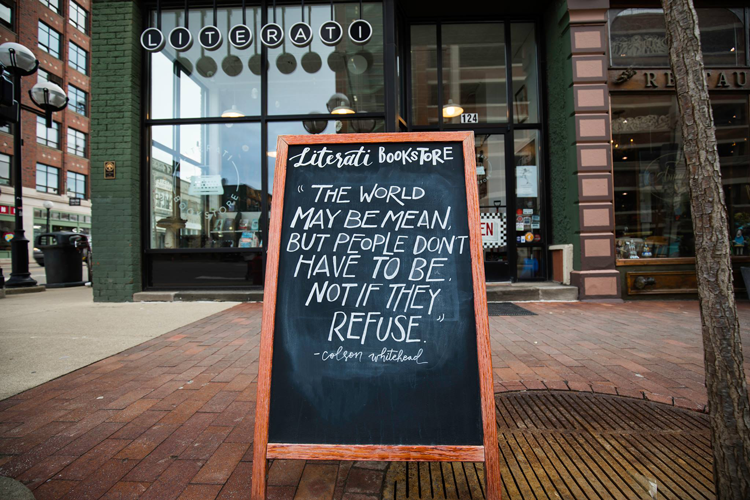 LITERATI
RESTAU
124
Literati BOOKSTORE
"THE WORLD
MAY BE MEAN,
BUT PEOPLE DON'T
HAVE TO BE,
NOT IF THEY
REFUSE."
-colson whitehead